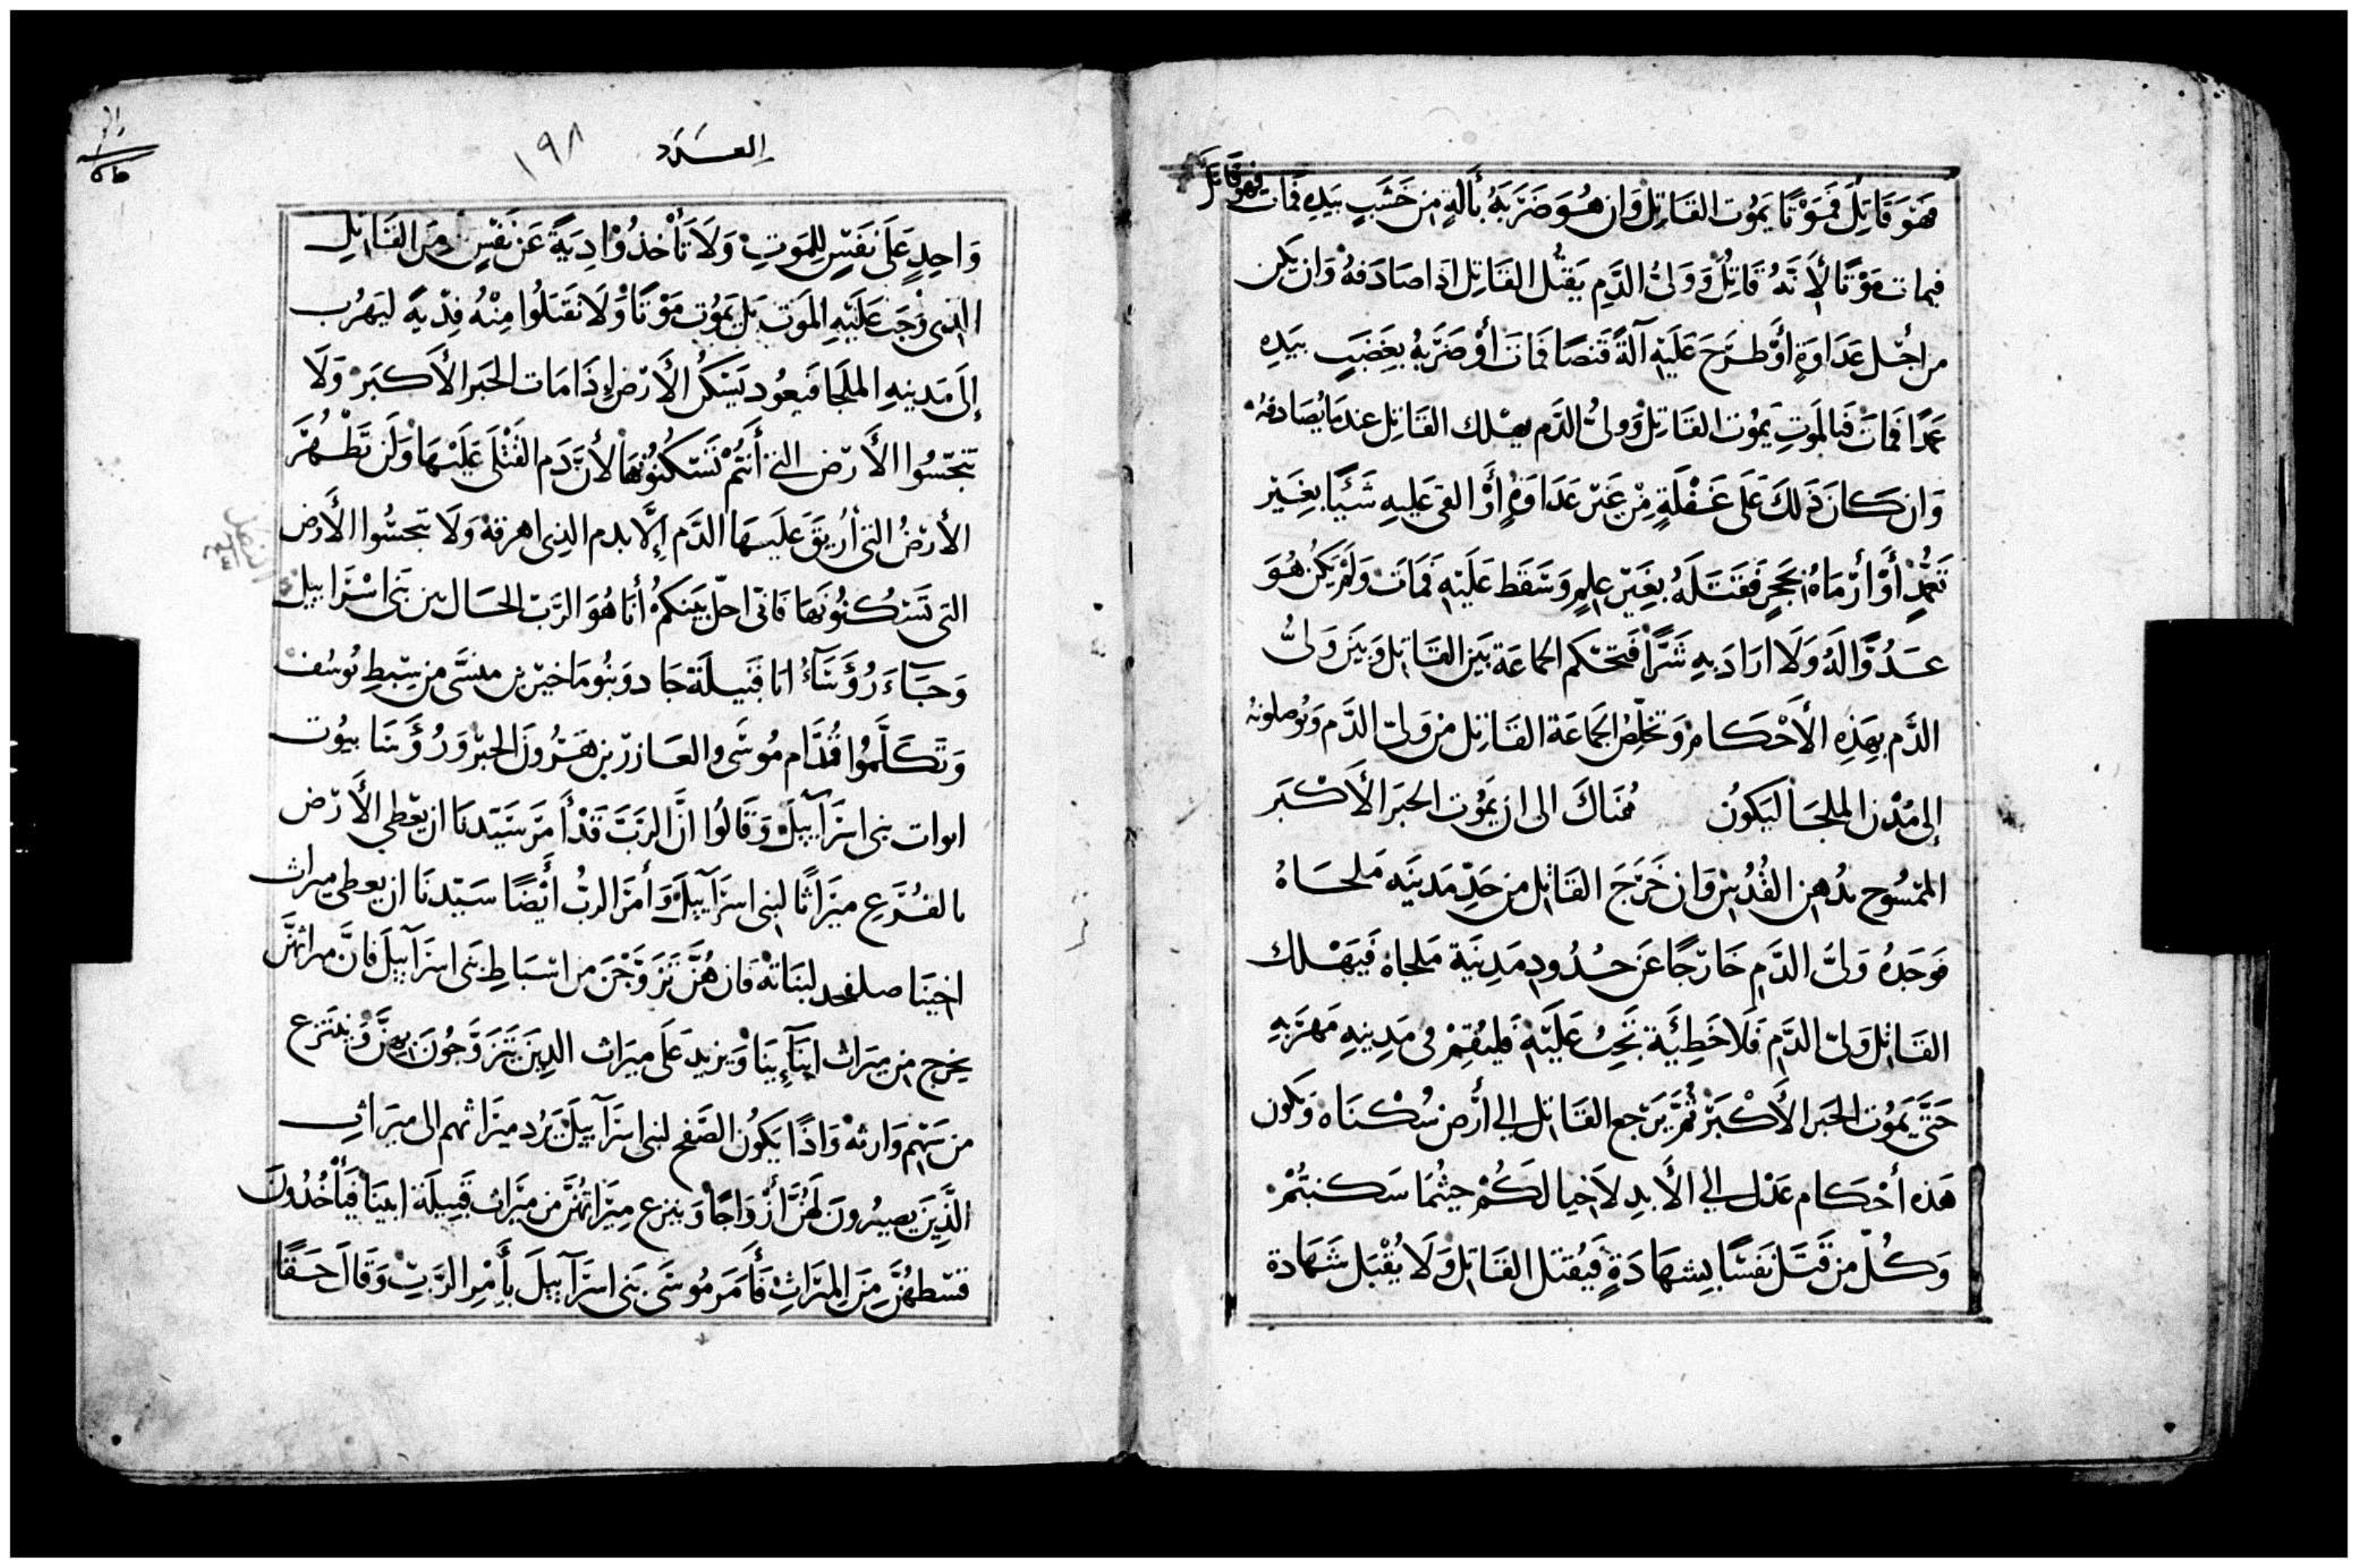 فَهَوَ قَاتِلٌ فَمَوْتًا يَمُوت القَاتِل وَان هُوَ ضَرَبَهُ بأَلةٍ مِن خَشَبٍ بيَدِهِ فَمات فهو قَاتل
فيمات مَوْتًا لأَنَهُ قَاتِلٌ وَوَلىُّ الدَّمِ يَقتُل القَاتِل اذا صَادَفهُ وَان يكن
من اجْل عَدَاوَةٍ أوْ طرَحَ عَلَيْهِ آلةً قَنصًا فَمَاتَ أَوْ ضَرَبهُ بِغَضَبٍ بيَدِه
عَمدًا فَماتَ فَبالمَوتِ يَمُوت القَاتِلْ وَولىُّ الدَّم يهْلك القَاتِل عندمَا يُصَادفهُ
وَان كَانَ ذَلكَ عَلَى غَفْلَةٍ مِنْ غَيْرِ عَدَاوَةٍ أَوْ القى عَليهِ شَيًا بِغَيْر
تَعَمُّدٍ أَوْ أرْمَاهُ بحَجَرٍ فَقَتَلَهُ بِغَيْرِ علمٍ وَسَقَط عَلَيْهِ فَمَاتَ وَلَمْ يَكُن هُوَ
عَدُوًّا لَهُ وَلَا ارَادَ بهِ شَرًّا فَتحْكم الجمَاعَة بَيْن القَاتِل وَبَيْن وَلىُّ
الدَّم بهَذِهِ الأَحْكَام وَتخَلِّصُ الجَمَاعَة القَاتِل من وَلىّ الدَّم وَيُوصلونهُ
إلى مُدْن الملجَأ ليَكوُن هُنَاكَ الى ان يَمُوت الحَبَر الأَكْبَر
المَمْسُوح بدُهن القُدْس وَان خَرَجَ القَاتِل من حَدِّ مَدينَه مَلجَاهُ
فوَجَدهُ وَلىُّ الدَّمِ خَارجًا عَن حدُودِ مَدِينَة مَلجاهُ فَيَهْلك
القَاتِل وَلىّ الدَّم فَلَا خَطِيَّة تَجِبُ عَلَيْهِ فَليُقِمْ فى مَدِينهِ مَهرَبهِ
حَتَّى يَمُوت الحَبَر الأَكْبَرْ ثُمَّ يَرْجع القَاتِل إلى أرْض سُكْنَاه وَتكون
هَذه أحْكَام عَدْل إلى الأَبدِ لأَجيالكُمْ حيثُما سَكنتُمْ
وَكُلّ من قَتَل نَفسًا بشهَادَةٍ فَيُقتل القَاتِل وَلَا يُقْبَل شَهَادة
العدد ١٩٨
وَاحِدٍ عَلَى نَفَسٍ لِلمَوتِ وَلَا تَأْخذُوْا دِيَةً عَنْ نَفْسٍ مِن القَاتِل
الذى وَجَبَ عَلَيْهِ المَوت بَل يَمُوت مَوْتًا وَلَا تقَبَلُوا مِنْهُ فِدْيةً ليَهرُب
إلَى مَدينهِ الملجَا فَيعُود يَسْكُن الأَرْض إذَا مَات الحَبر الأَكبَر وَلَا
تنَجّسُوا الأَرْض التى أَنتُمْ تَسْكُنُونهَا لأنَّ دَم القَتْلَى عَلَيْهَا وَلَن تَطْهُرَ
الأرْضُ التى أُرِيقَ عَلَيهَا الدَّم إلَّا بدم الذى اهرقهُ وَلَا تنجسُّوا الأَرض
التى تَسْكُنُونَهَا فَانى احلّ بَيْنكمْ أنَا هُوَ الرَبّ الحَال بين بَنى اسْرَاييل
وَجَاءَ رُؤَسَآءُ ابَا قَبيلَة جَاد وَبنُومَاخيرْ بن منسَّى من سِبطِ يُوسُف
وَتَكَلَّمُوا قُدَّام مُوسَى والعَازر بن هَرُونَ الحبر وَرُؤَسَا بيُوت
ابوات بنى اسرَآييلَ وَقَالُوا انَّ الرَبَّ قَدْ أَمَرَ سَيّدنَا ان يعْطى الأَرْض
بالقُرْعِ ميرَاثًا لبنى اسرَآييلَ وَأمَرَ الربُّ أَيْضًا سَيّدنَا ان يعطى ميراث
اخينَا صلفحد لبنَاتهْ فَان هُنَّ تَزَوَّجْنَ من اسْبَاطِ بَنى اسرَآييلَ فَانَّ ميراثهنَّ
يخرج من ميرَاث ابَآيِنَا وَيزيد عَلَى ميرَاث الذِينَ يَتَزَوَّجُونَ بهنَّ وَينْتزع
من سَهْم وَارثهْ وَاذَا يَكوُن الصَفح لبنى اسرَآييلَ يَرُد ميرَاثهم الى ميرَاثِ
الذَّينَ يصيرُونَ لَهُنَّ أَزْوَاجًا وَينزع مِيرَاثهُنَّ من ميرَاث قَبِيلَة ابينَا فَيَأْخُذُونَ
قسْطهُنَّ مِنَ الميرَاثِ فَأَمَرَ مُوسَى بَنى اسرَآييلَ بأَمْرِ الرَّبّ وَقَالَ حَقًا